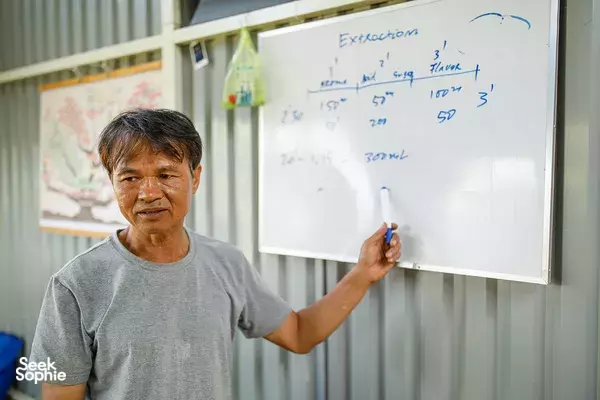 Extraction
1' 2' 3'
Aroma Acid Sweet Flavor
150ml 50ml 100ml 3'
230 200 50
300mL
Seek
Sophie